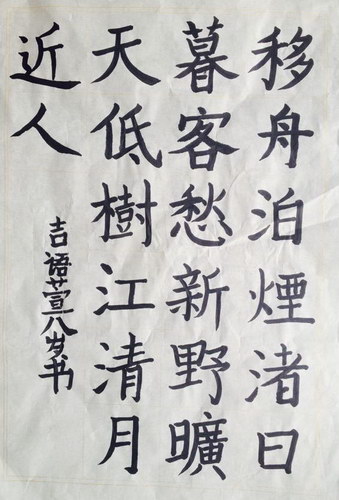 移舟泊煙渚日
暮客愁新野曠
天低樹江清月
近人
吉语萱八岁书